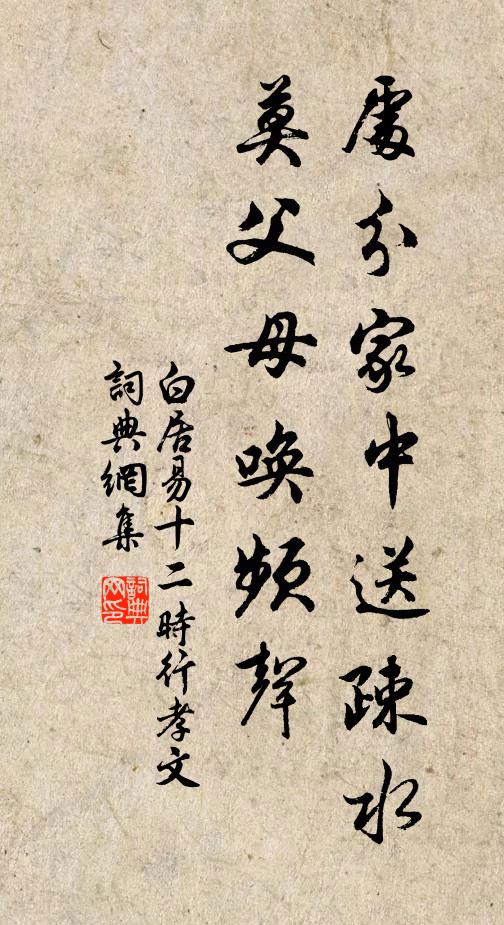 處分家中送疎水
莫父母唤頻聲
白居易十二時行孝文
詞典網集
詞典网印